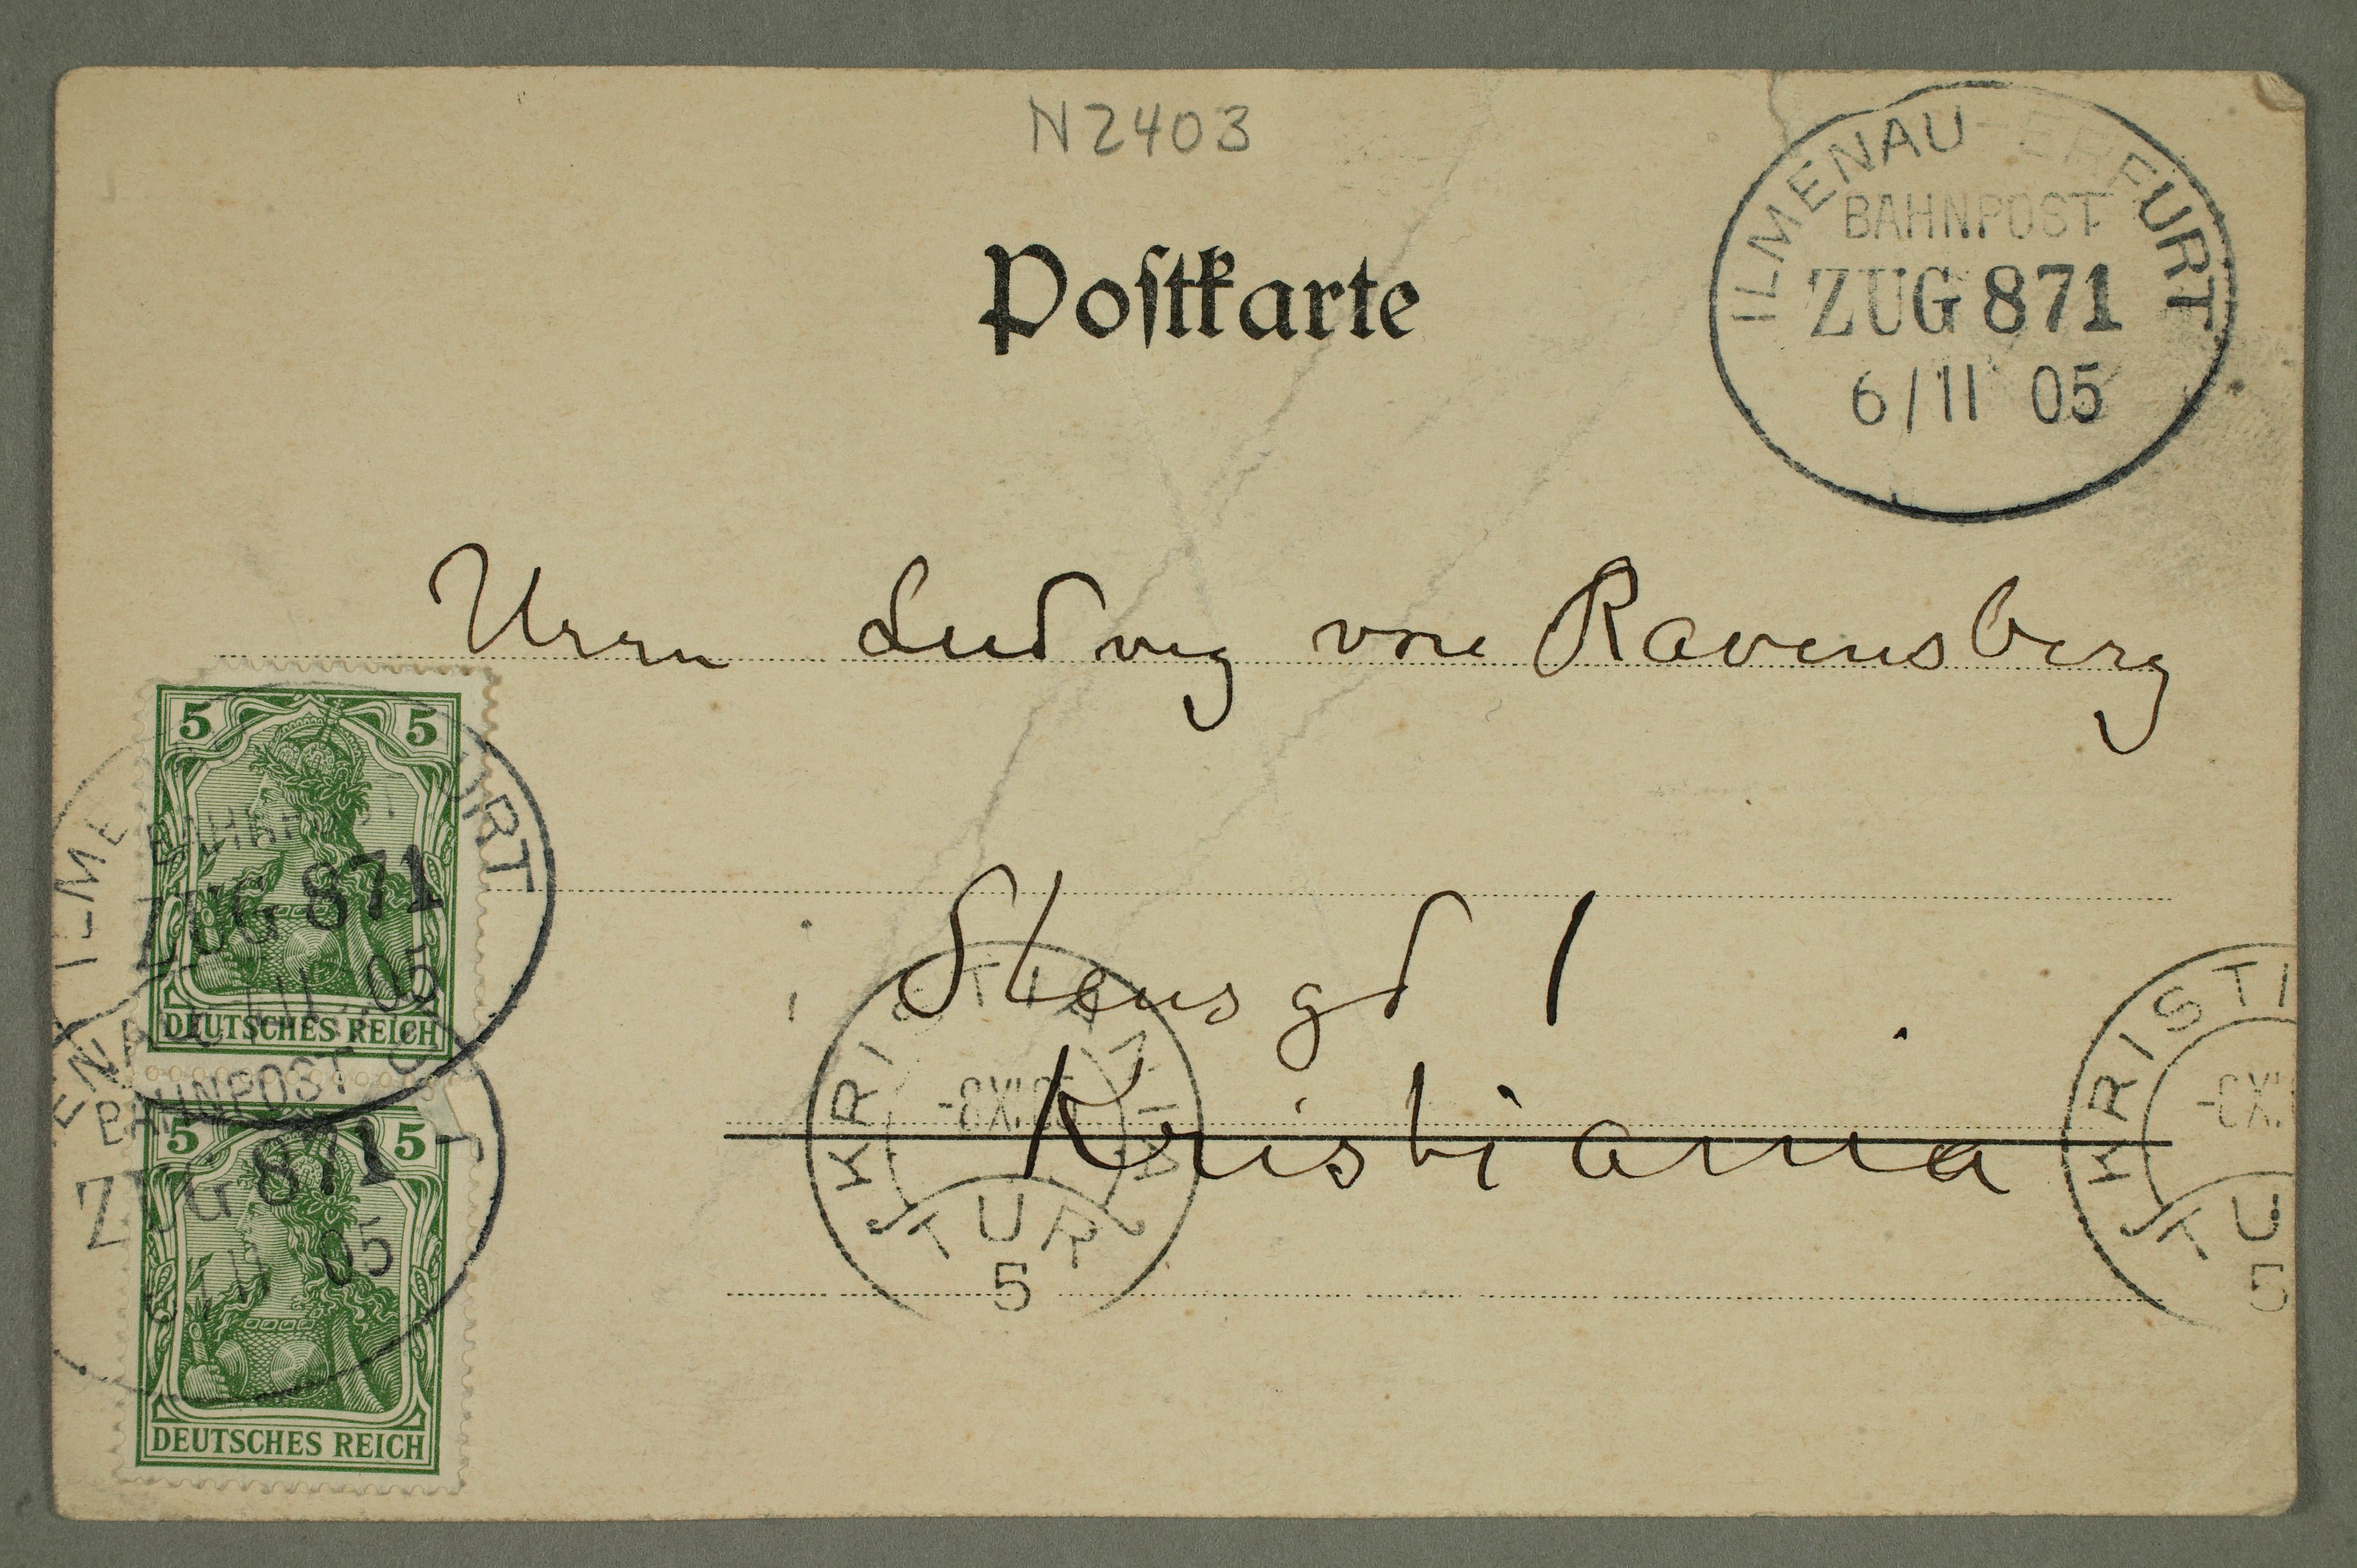 N2403
Poſtkarte
ILMENAU-ERFURT
BAHNPOST
ZUG 871
6/11 05
Herrn Ludvig von Ravensberg
Stensgd 1
Kristiania
5 5
URT
ILME
ZUG 871
/11 .05
DEUTSCHES REICH
ENA
BAHNPOST
5 5
ZUG 871
6/11 05
DEUTSCHES REICH
KRISTIANIA
-8 XI 05
TUR
5
KRISTI
TU
5